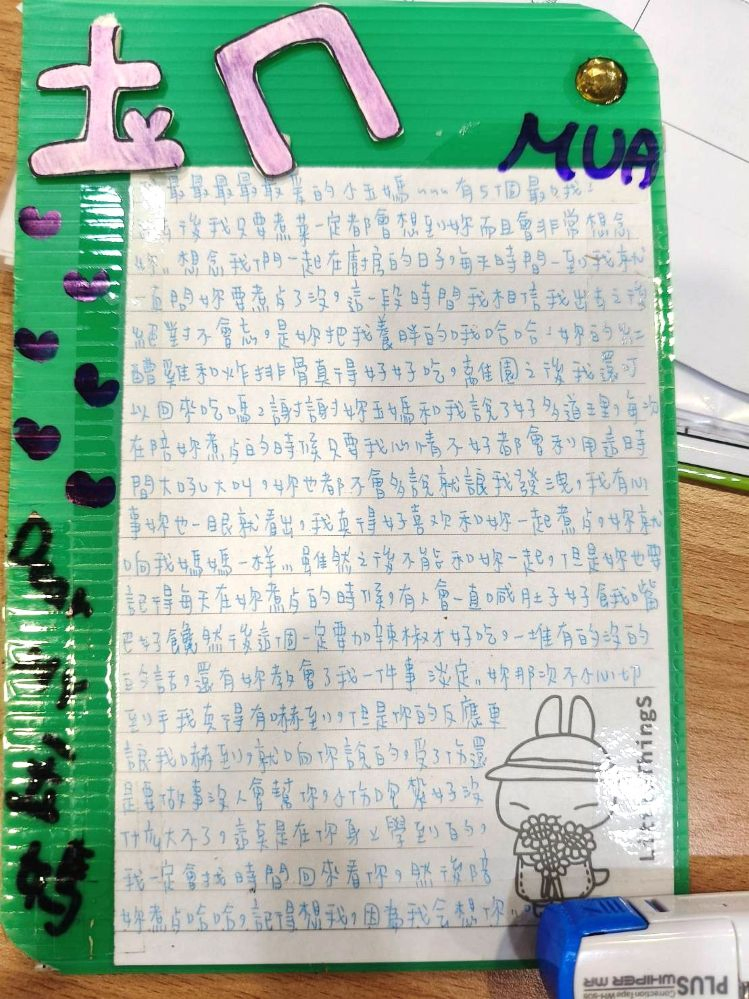 出口
MUA
最最最最最愛的小玉媽~~~有5個最の我！
後我只要煮菜一定都會想到妳而且會非常想念
妳..想念我們一起在廚房的日子，每天時間一到我就
一直問妳要煮点了沒，這一段時間我相信我出去之後
絕對不會忘，是妳把我養胖的哦哈哈！妳的紅
醩雞和炸排骨真得好好吃，離園之後我還可
以回來吃嗎？謝謝妳玉媽和我說了好多道理，每次
在陪妳煮点的時候只要我心情不好都會利用這時
間大吼大叫，妳也都不會多說就讓我發洩，我有心
事妳也一眼就看出，我真得好喜欢和妳一起煮点，妳就
向我媽媽一样..雖然之後不能和妳一起，但是妳也要
記得每天在妳煮点的時候，有人會一直喊肚子好餓我嘴
巴好饞然後這個一定要加辣椒才好吃，一堆有的沒的
的話，還有妳教會了我一件事淡定..妳那次不小心切
到手我真得有嚇到，但是你的反應更
讓我嚇到，就向你說的，受了伤還
是要做事沒人會幫你，小伤口包紮好沒
什広大不了，這真是在你身上學到的，
我一定會找時間回來看你，然後陪
妳煮点哈哈，記得想我，因為我会想你..
Little Things
PLUS
WHIPER MR
Correction Tape